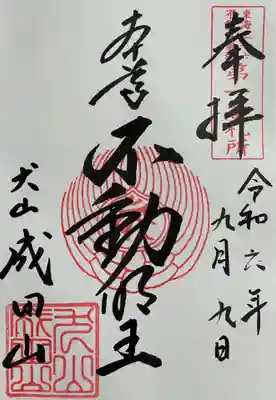 奉拝
令和六年
九月九日
本尊
不動明王
犬山成田山